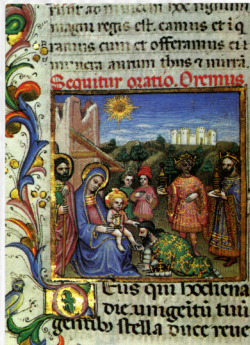 magni regis est. eamus et iq
ramus eum et offeramus ei
munera aurum thus & mirrã.
Sequitur oratio. Oremus.
Eus qui hodierna
die unigenitũ tuũ
gentibus stella duce reve